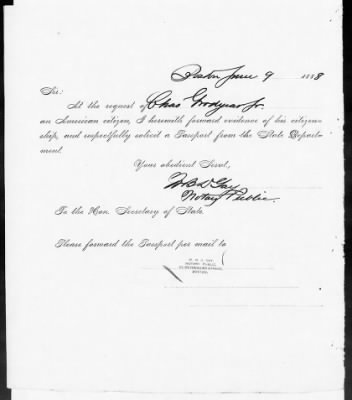 Boston June 9 1888
Sir:
At the request of Chas Goodyear Jr.
an American citizen, I herewith forward evidence of his citizen-
ship, and respectfully solicit a Passport from the State Depart-
ment.
Your obedient Servt,
W B D Gay
Notary Public.
To the Hon. Secretary of State.
Please forward the Passport per mail to
W. B. D. GAY,
NOTARY PUBLIC,
BOSTON.